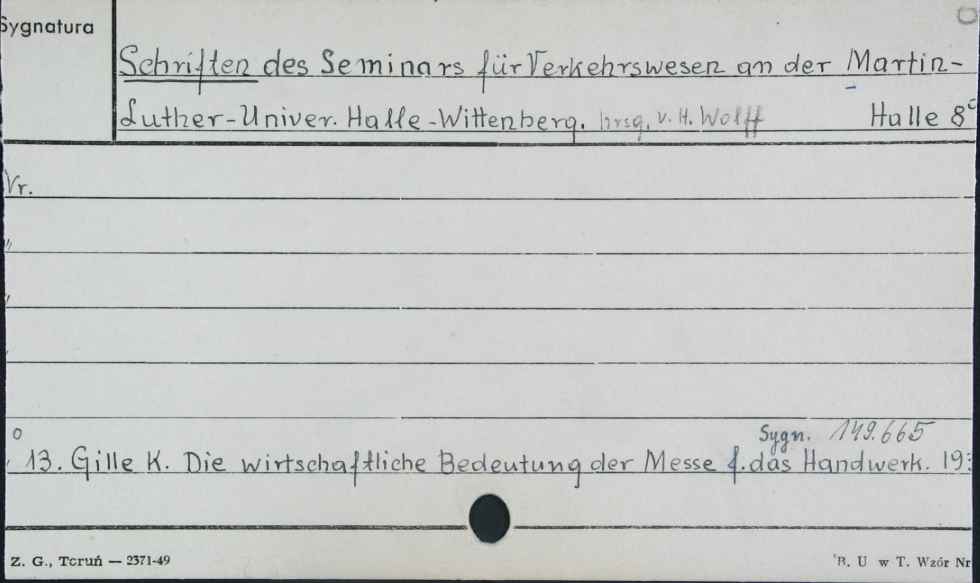 Sygnatura
Schriften des Seminars für Verkehrswesen an der Martin-
Luther-Univer. Halle-Wittenberg. hrsg. v. H. Wolff Halle 8°
Vr.
"
o
Sygn. 149.665
13. Gille K. Die wirtschaftliche Bedeutung der Messe f. das Handwerk. 19
Z. G., Toruń — 2371-49
B. U w T. Wzór Nr